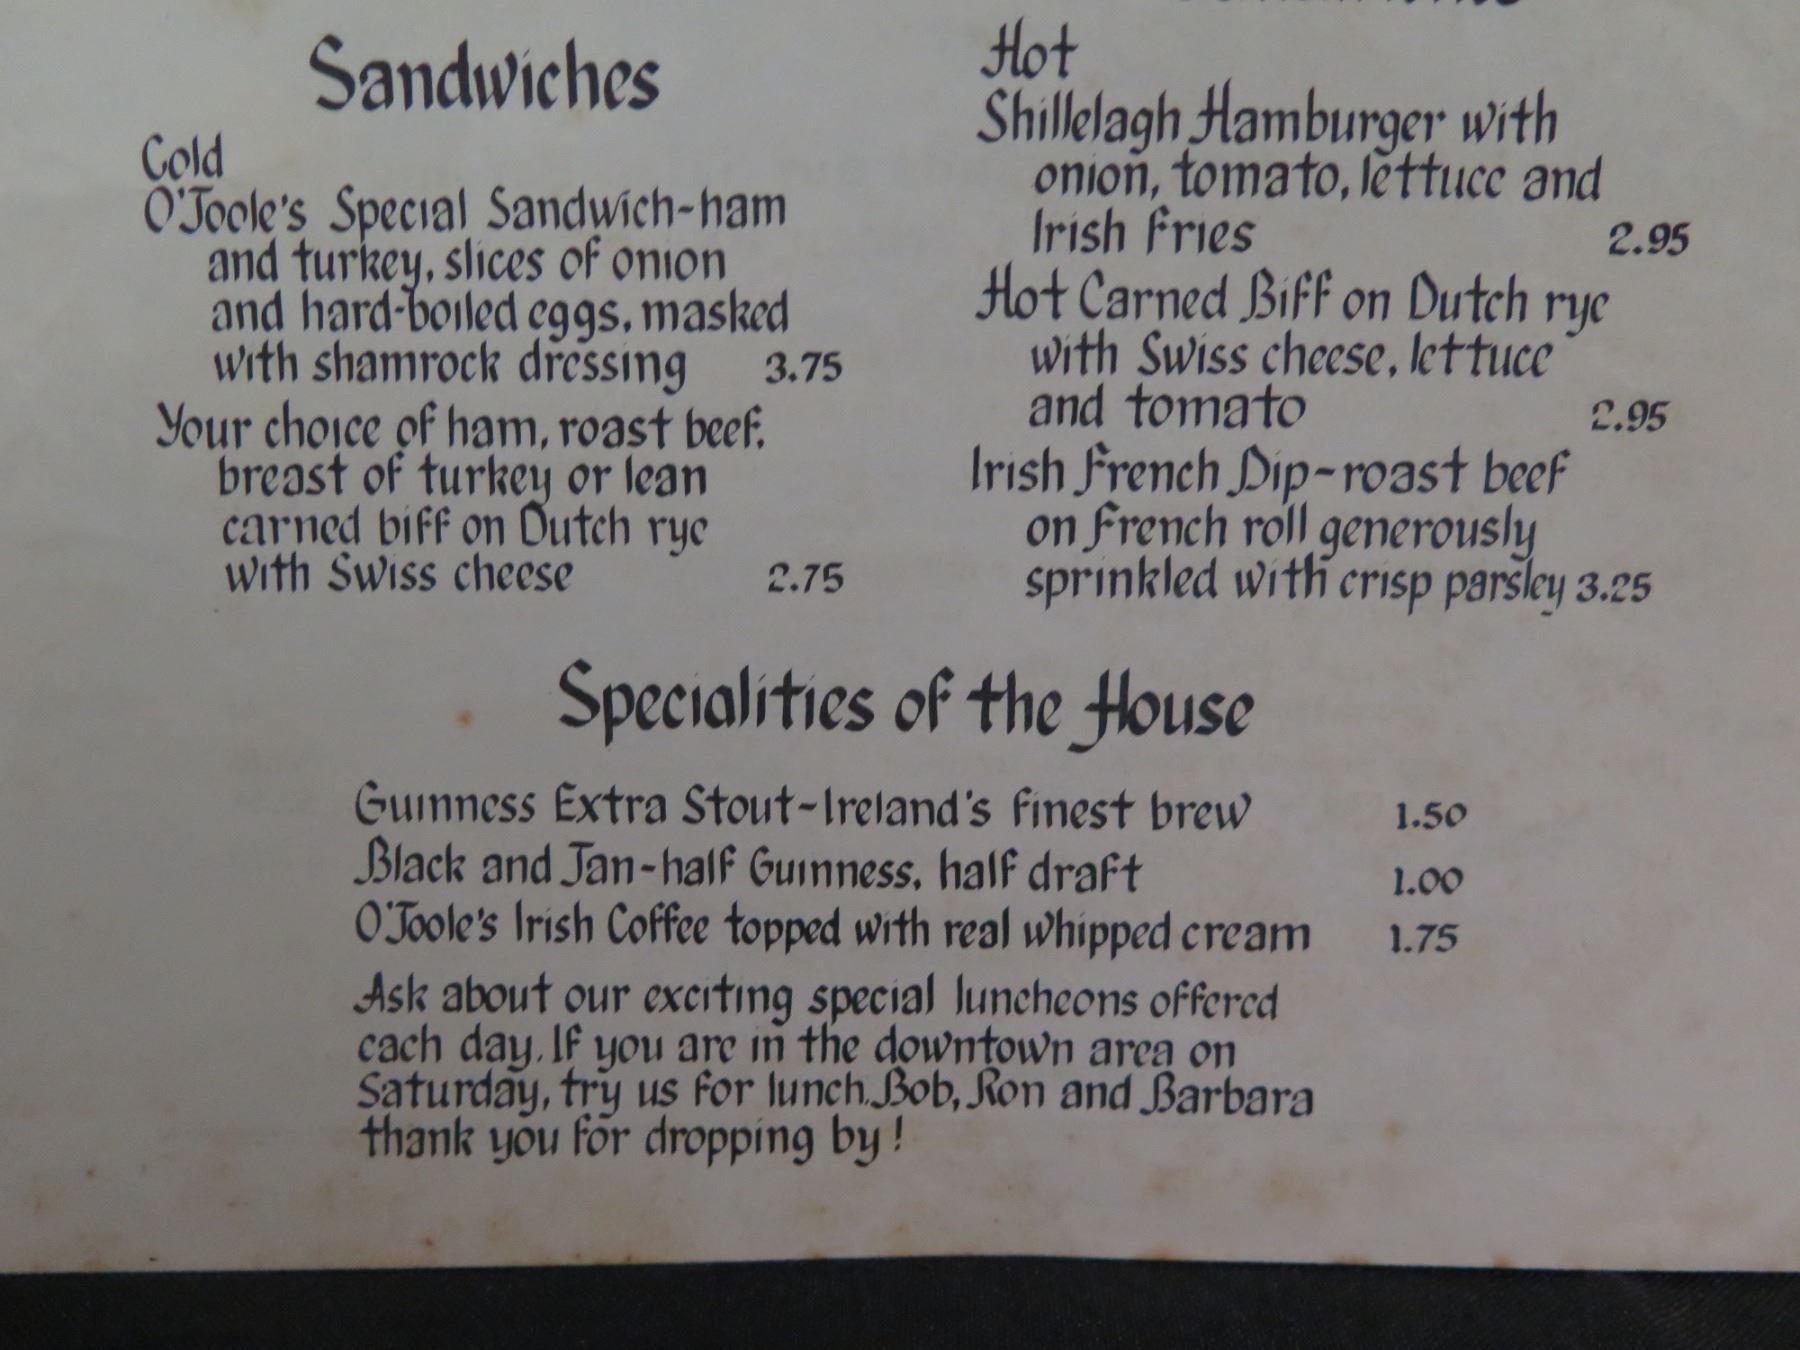 Sandwiches
Cold
O'Toole's Special Sandwich-ham
and turkey, slices of onion
and hard-boiled eggs, masked
with shamrock dressing 3.75
Your choice of ham, roast beef,
breast of turkey or lean
carned biff on Dutch rye
with Swiss cheese 2.75
Hot
Shillelagh Hamburger with
onion, tomato, lettuce and
Irish Fries 2.95
Hot Carned Biff on Dutch rye
with Swiss cheese, lettuce
and tomato 2.95
Irish French Dip-roast beef
on French roll generously
sprinkled with crisp parsley 3.25
Specialities of the House
Guinness Extra Stout-Ireland's finest brew 1.50
Black and Tan-half Guinness, half draft 1.00
O'Toole's Irish Coffee topped with real whipped cream 1.75
Ask about our exciting special luncheons offered
each day. If you are in the downtown area on
Saturday, try us for lunch. Bob, Ron and Barbara
thank you for dropping by!